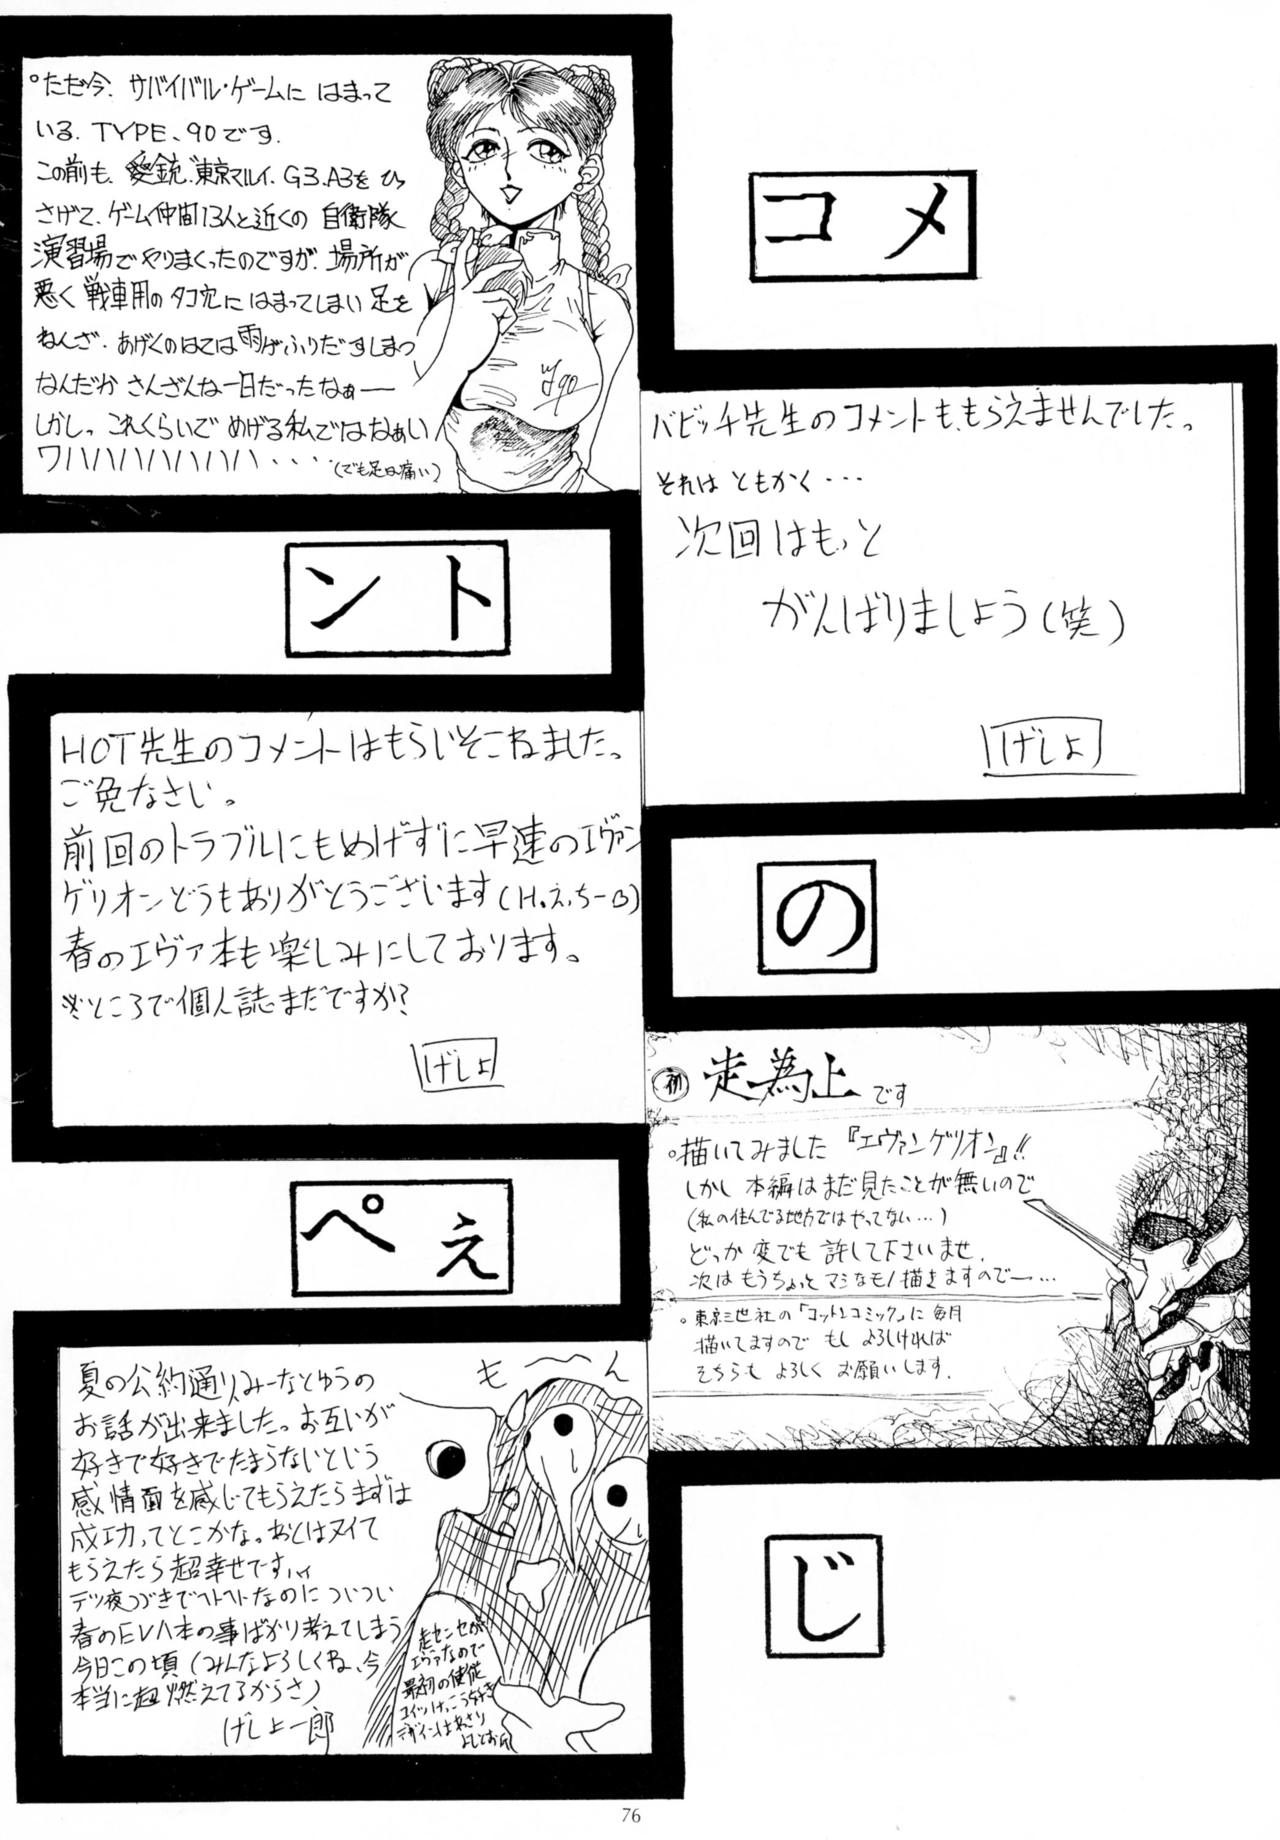 コメ
ント
の
ぺぇ
じ
°ただ今、サバイバル・ゲームに はまって
いる、TYPE、90です.
この前も、愛銃、東京マルイ、G3.A3を ひっ
さげて、ゲーム仲間13人と近くの 自衛隊
演習場でやりまくったのですが、場所が
悪く 戦車用のタコ穴に はまってしまい 足を
ねんざ. あげくのはては雨がふりだすしまつ
なんだか さんざんな一日だったなぁー
しかしっ これくらいで めげる私ではなぁい
ワハハハハハハハハ・・・・(でも足は痛い)
バビッチ先生のコメントも、もらえませんでした。
それは ともかく・・・
次回はもっと
がんばりましょう(笑)
げしょ
HOT先生のコメントはもらいそこねました。
ご免なさい。
前回のトラブルにもめげずに早速のエヴァン
ゲリオンどうもありがとうございます
春のエヴァ本も楽しみにしております。
※ところで個人誌まだですか?
げしょ
初 走為上です
°描いてみました『エヴァンゲリオン』!!
しかし 本編はまだ見たことが無いので
(私の住んでる地方ではやってない…)
どっか 変でも 許して下さいませ.
次は もうちょっと マシなモノ描きますのでー…
°東京三世社の「コットンコミック」に 毎月
描いてますので もし よろしければ
そちらも よろしく お願いします.
夏の公約通りみーなとゆうの
お話が出来ました。お互いが
好きで好きでたまらないという
感情面を感じてもらえたらまずは
成功ってとこかな。あとはヌイて
もらえたら超幸せですっ
テツ夜つづきでヘトヘトなのについつい
春のEVA本の事ばかり考えてしまう
今日この頃(みんなよろしくね、今
本当に超燃えてるからさ)
げしょ一郎
もーん
走センセが
エヴァなので
最初の使徒
コイツけっこう好き
デザインはあさり
よしとお氏
76